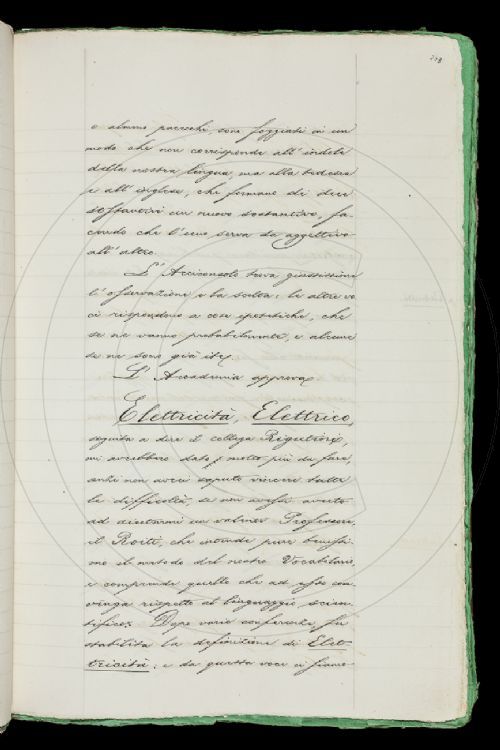 o almeno parecchi, sono foggiati in un
modo che non corrisponde all'indole
della nostra lingua, ma alla tedesca
e all'inglese, che formano di due
sostantivi un nuovo sostantivo, fa-
cendo che l'uno serva da aggettivo
all'altro.
L'Arciconsolo trova giustissima
l'osservazione e la scelta: le altre vo
ci rispondono a cose ipotetiche, che
se ne vanno probabilmente, e alcune
se ne sono già ite.
L'Accademia approva.
Elettricità, Elettrico,
seguita a dire il collega Rigutini,
mi avrebbero dato molto più da fare,
anzi non avrei saputo vincere tutte
le difficoltà, se non avessi avuto
ad aiutarmi un valoroso Professore,
il Roiti, che intende pure benissi-
mo il metodo del nostro Vocabolario,
e comprende quello che ad esso con-
venga rispetto al linguaggio scien-
tifico. Dopo varie conferenze, fu
stabilita la definizione di Elet-
tricità; e da questa voce ci siamo